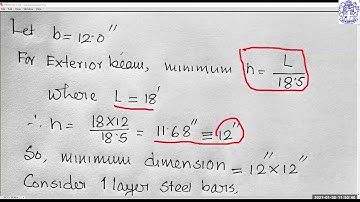 Let b = 12.0"
For Exterior beam, minimum h = L / 18.5
where L = 18'
∴ h = 18×12 / 18.5 = 11.68" ≡ 12"
So, minimum dimension = 12" × 12"
Consider 1 layer steel bars,